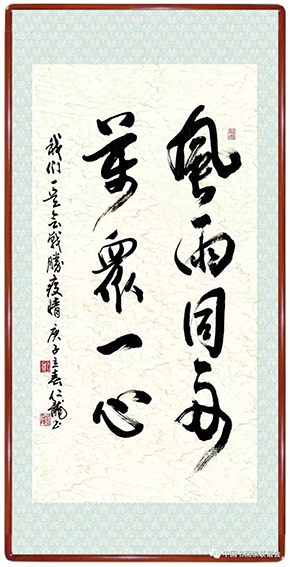 風雨同舟
萬衆一心
我们一定会戰勝疫情 庚子立春仁龍书
中国书画家联谊会